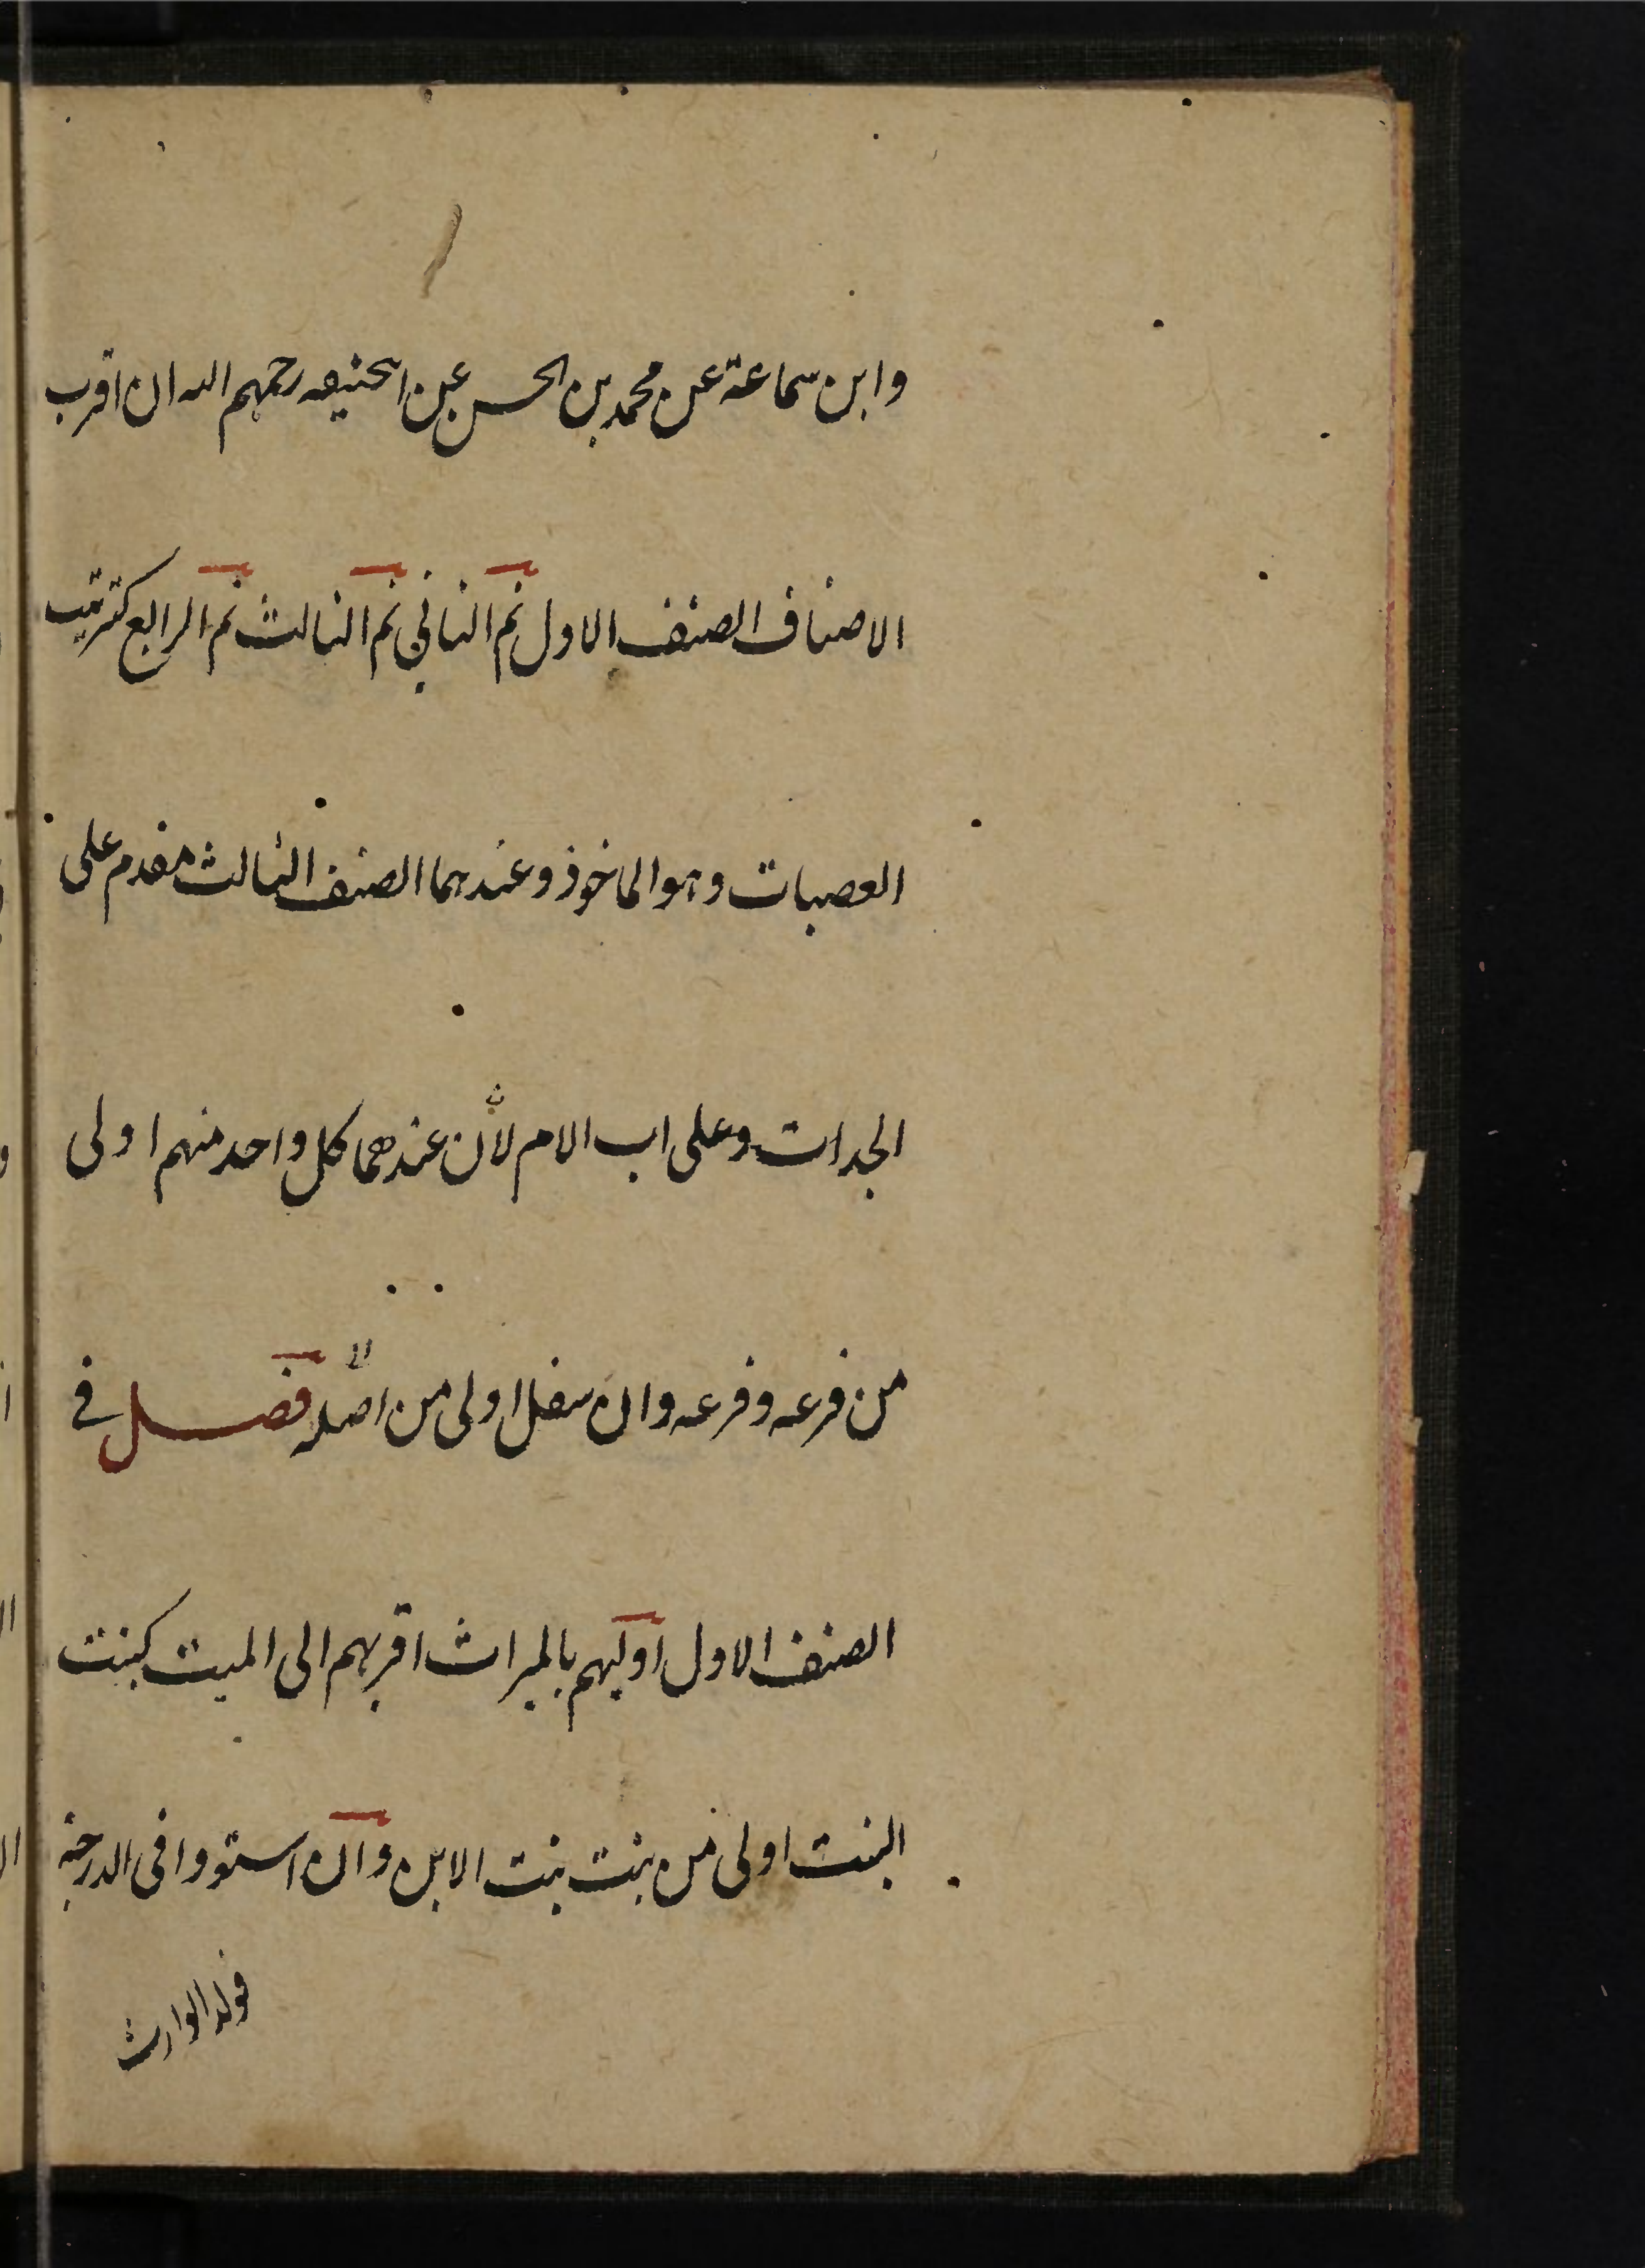 وابن سماعة عن محمد بن الحسن عن ابحنيفه رحمهم الله ان اقرب
الاصناف الصنف الاول ثم الثاني ثم الثالث ثم الرابع كترتيب
العصبات وهو الماخوذ وعندهما الصنف الثالث مقدم على
الجدات وعلى اب الام لأن عندهما كل واحد منهم اولى
من فرعه وفرعه وان سفل اولى من اصله فصل في
الصنف الاول اوليهم بالميراث اقربهم الى الميت كبنت
البنت اولى من بنت بنت الابن وان استووا في الدرجة
فولد الوارث